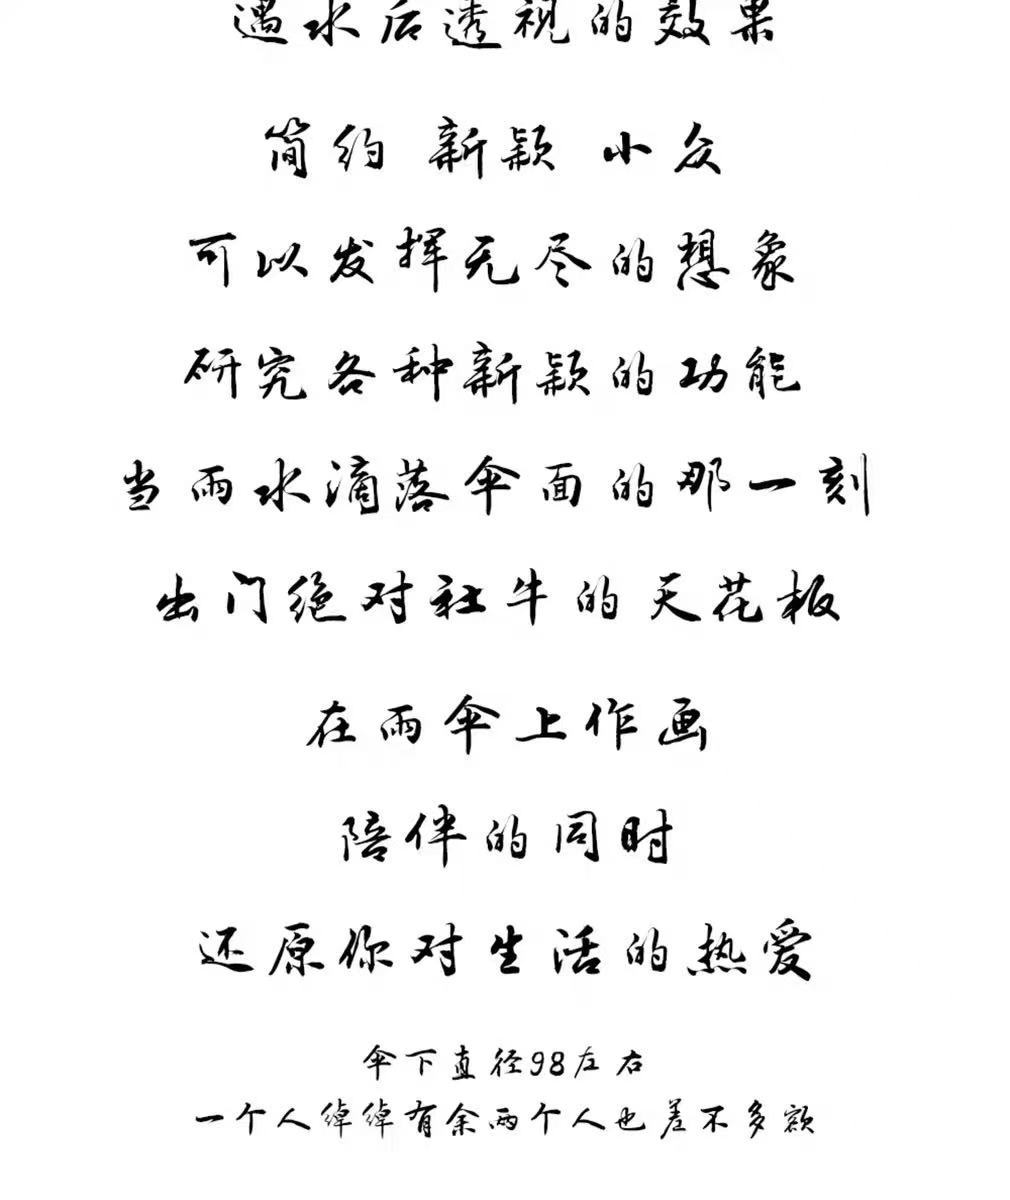 遇水后透视的效果
简约 新颖 小众
可以发挥无尽的想象
研究各种新颖的功能
当雨水滴落伞面的那一刻
出门绝对社牛的天花板
在雨伞上作画
陪伴的同时
还原你对生活的热爱
伞下直径98左右
一个人绰绰有余两个人也差不多额